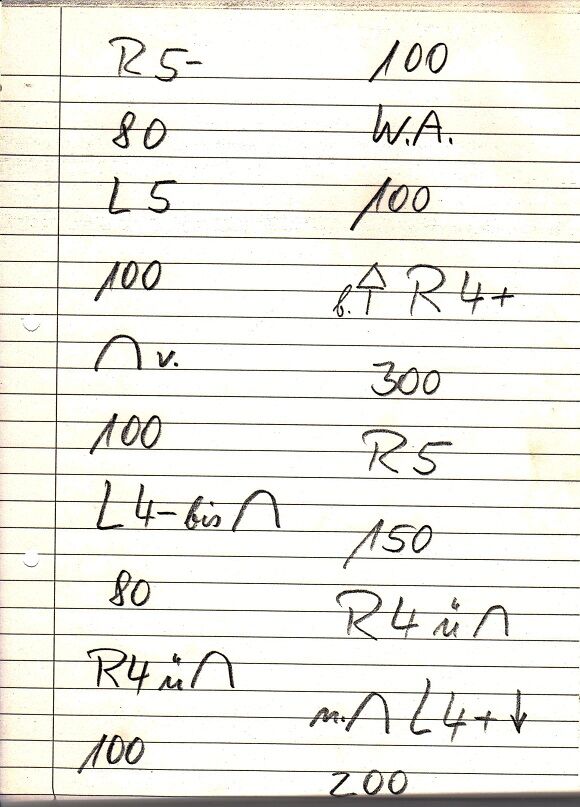 R 5-
80
L 5
100
∩ v.
100
L 4- bis ∩
80
R 4 ü ∩
100
100
W.A.
100
b. R 4+
300
R 5
150
R 4 ü ∩
n. ∩ L 4+ ↓
200